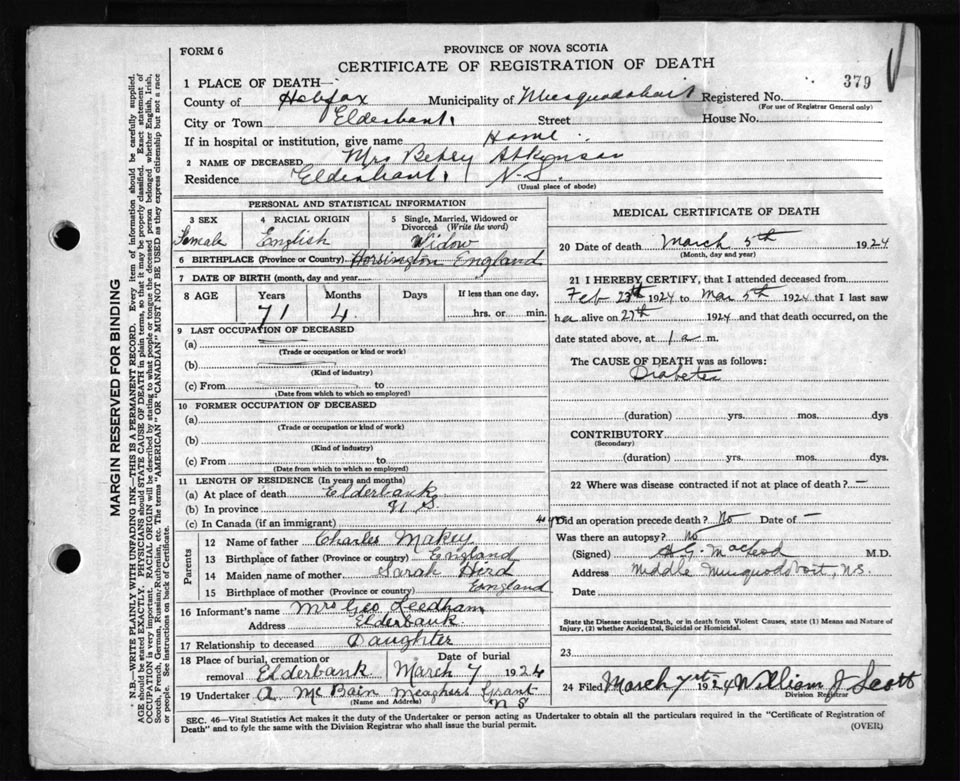 FORM 6
PROVINCE OF NOVA SCOTIA
CERTIFICATE OF REGISTRATION OF DEATH
379
1 PLACE OF DEATH—
County of Halifax Municipality of Musquodoboit Registered No.
(For use of Registrar General only)
City or Town Elderbank. Street House No.
If in hospital or institution, give name Home.
2 NAME OF DECEASED Mrs Betsy Atkynson
Residence Elderbank, N.S.
(Usual place of abode)
PERSONAL AND STATISTICAL INFORMATION
3 SEX 4 RACIAL ORIGIN 5 Single, Married, Widowed or Divorced (Write the word)
Female English Widow
6 BIRTHPLACE (Province or Country) Horsington England
7 DATE OF BIRTH (month, day and year)
8 AGE Years Months Days If less than one day,
71 4 hrs. or min.
9 LAST OCCUPATION OF DECEASED
(a)
(Trade or occupation or kind or work)
(b)
(Kind of industry)
(c) From to
(Date from which to which so employed)
10 FORMER OCCUPATION OF DECEASED
(a)
(Trade or occupation or kind of work)
(b)
(Kind of industry)
(c) From to
(Date from which to which so employed)
11 LENGTH OF RESIDENCE (In years and months)
(a) At place of death Elderbank
(b) In province N S.
(c) In Canada (if an immigrant)
Parents
12 Name of father Charles Makey
13 Birthplace of father (Province or country) England
14 Maiden name of mother Sarah Hird
15 Birthplace of mother (Province or country) England
16 Informant's name Mrs Geo Leedham
Address Elderbank
17 Relationship to deceased Daughter
18 Place of burial, cremation or removal Elderbank Date of burial March 7 1924
19 Undertaker A. McBain Meaghers Grant N S
(Name and Address)
MEDICAL CERTIFICATE OF DEATH
20 Date of death March 5th 1924
(Month, day and year)
21 I HEREBY CERTIFY, that I attended deceased from
Feb 23th 1924 to Mar 5th 1924 that I last saw
her alive on 27th 1924 and that death occurred, on the
date stated above, at 1 a m.
The CAUSE OF DEATH was as follows:
Diabetes
(duration) yrs. mos. dys
CONTRIBUTORY
(Secondary)
(duration) yrs. mos. dys.
22 Where was disease contracted if not at place of death? —
Did an operation precede death? No Date of —
Was there an autopsy? No
(Signed) A G. MacLeod M.D.
Address Middle Musquodoboit, N.S.
Date
State the Disease causing Death, or in death from Violent Causes, state (1) Means and Nature of
Injury, (2) whether Accidental, Suicidal or Homicidal.
23
24 Filed March 7th 1924 William J Scott
Division Registrar
SEC. 46—Vital Statistics Act makes it the duty of the Undertaker or person acting as Undertaker to obtain all the particulars required in the "Certificate of Registration of
Death" and to fyle the same with the Division Registrar who shall issue the burial permit.
(OVER)
MARGIN RESERVED FOR BINDING
N.B.—WRITE PLAINLY WITH UNFADING INK—THIS IS A PERMANENT RECORD. Every item of information should be carefully supplied.
AGE should be stated EXACTLY. PHYSICIANS should STATE CAUSE OF DEATH in plain terms, so that it may be properly classified. Exact statement of
OCCUPATION is very important. RACIAL ORIGIN will be described by stating to what people or tongue the deceased person belonged whether English, Irish,
Scotch, French, German, Russian/Ruthenian, etc. The terms "AMERICAN" OR "CANADIAN" MUST NOT BE USED as they express citizenship but not a race
or people. See instructions on back of Certificate.